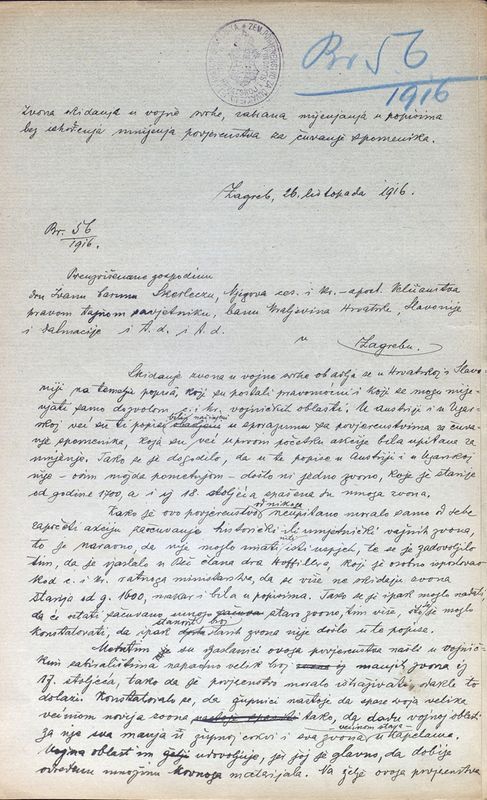 Br 56
1916
Zvona skidanja u vojne svrhe, zabrana mijenjanja u popisima
bez ishođenja mnijenja povjerenstva za čuvanje spomenika.
Zagreb, 26. listopada 1916.
Br. 56
1916.
Preuzvišenomu gospodinu
dru Ivanu barunu Skerleczu, Njegova ces. i kr. - apost. Veličanstva
pravom tajnom savjetniku, banu Kraljevina Hrvatske, Slavonije
i Dalmacije i t. d. i t. d.
u
Zagrebu.
Skidanje zvona u vojne svrhe obavlja se u Hrvatskoj i Slavo-
niji na temelju popisa, koji su postali pravomoćni i koji se mogu mije-
njati samo dozvolom c. i kr. vojničkih oblasti. U Austriji i u Ugar-
skoj već su te popisi bili načinjeni u sporazumu sa povjerenstvima za čuva-
nje spomenika, koja su već u prvom početku akcije bila upitana za
mnijenje. Tako se je dogodilo, da u te popise u Austriji i u Ugarskoj
nije - osim možda pometnjom - došlo ni jedno zvono, koje je starije
od godine 1700, a i iz 18. stoljeća spašena su mnoga zvona.
Kako je ovo povjerenstvo od nikoga neupitano moralo samo od sebe
započeti akciju sačuvanja historički ili umjetnički važnih zvona,
to je naravno, da nije moglo imati isti uspjeh, te se je zadovoljilo
tim, da je izaslalo u Beč člana dra Hoffillera, koji je osobno isposlovao
kod c. i kr. ratnoga ministarstva, da se više ne skidaju zvona
starija od g. 1600, makar i bila u popisima. Tako se je ipak moglo nadati,
da će ostati sačuvano staro zvono, tim više, što se je moglo
konstatovati, da ipak znatni broj starih zvona nije došlo u te popise.
Međutim su izaslanici ovoga povjerenstva našli u vojnič-
kim sabiralištima napadno velik broj manjih zvona iz
17. stoljeća, tako da je povjerenstvo moralo istraživati, odakle to
dolazi. Konstatovalo se, da župnici nastoje da spase svoja velika
većinom novija zvona tako, da dadu vojnoj oblasti
za nje sva manja iz župnoj crkvi i sva zvona većinom stara u kapelama.
Vojna oblast im želji udovoljuje, jer joj je glavno, da dobije
određenu množinu kovnoga materijala. Na želje ovoga povjerenstva